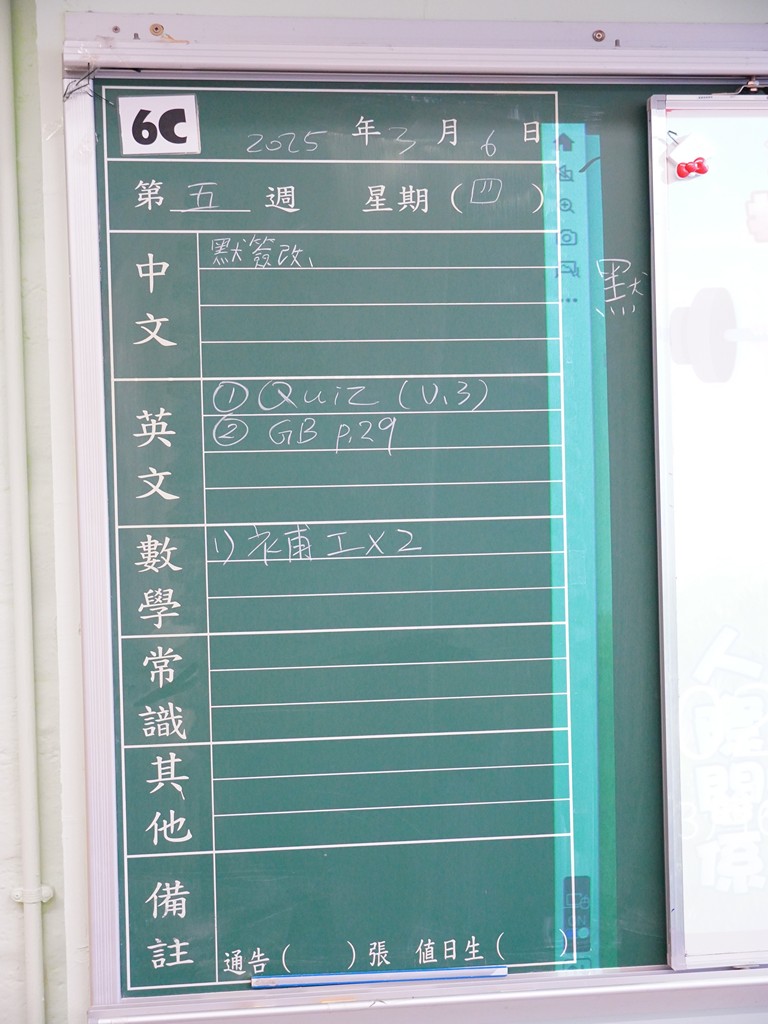 6C
2025 年 3 月 6 日
第 五 週 星期 ( 四 )
中文
默簽改、
默
英文
① Quiz (U.3)
② GB p.29
數學
1) 補工x2
常識
其他
備註
通告 ( ) 張 值日生 ( )
人際關係